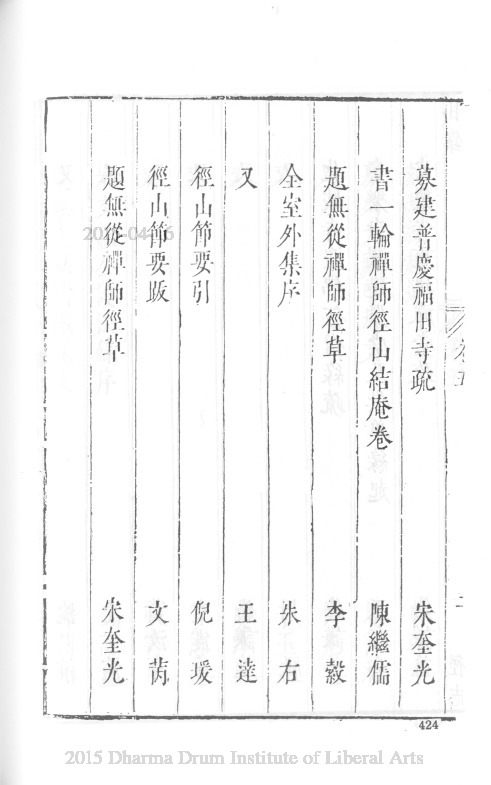 募建普慶福田寺疏 宋奎光
書一輪禪師徑山結庵卷 陳繼儒
題無從禪師徑草 李
全室外集序 朱右
又 王達
徑山節要引 倪瑗
徑山節要跋 文
題無從禪師徑草 宋奎光
424
2015 Dharma Drum Institute of Liberal Arts